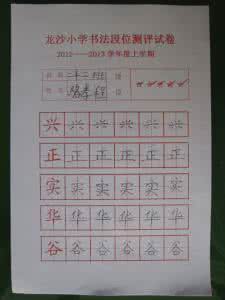 龙沙小学书法段位测评试卷
2012——2013学年度上学期
二十二班
兴 兴 兴 兴 兴 兴
正 正 正 正 正 正
实 实 实 实 实 实
华 华 华 华 华 华
谷 谷 谷 谷 谷 谷